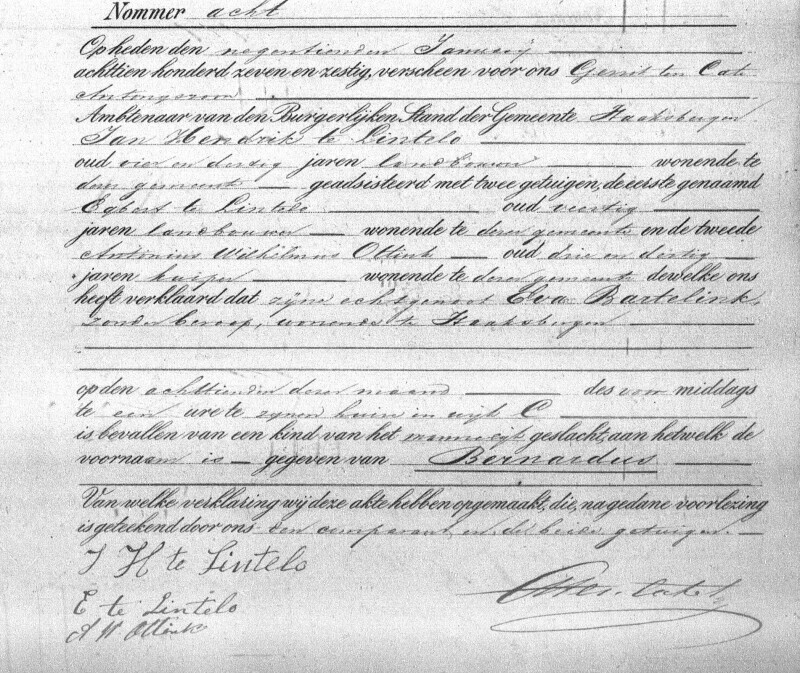 Nommer acht
Op heden den negentienden January
achttien honderd zeven en zestig, verscheen voor ons Gerrit ten Cate
Antonyzoon
Ambtenaar van den Burgerlijken Stand der Gemeente Haaksbergen
Jan Hendrik te Lintelo
oud vier en dertig jaren landbouwer wonende te
dezer gemeente geadsisteerd met twee getuigen, de eerste genaamd
Egbert te Lintelo oud veertig
jaren landbouwer wonende te dezer gemeente en de tweede
Antonius Wilhelmus Ottink oud drie en dertig
jaren kuiper wonende te dezer gemeente dewelke ons
heeft verklaard dat zijne echtgenoot Eva Bartelink,
zonder beroep, wonende te Haaksbergen
op den achttienden dezer maand des voor middags
te een ure te zynen huize in wijk C
is bevallen van een kind van het mannelijk geslacht, aan hetwelk de
voornaam is gegeven van Bernardus
Van welke verklaring wij deze akte hebben opgemaakt, die, na gedane voorlezing
is geteekend door ons den comparant en de beide getuigen.
J H te Lintelo
E te Lintelo
A W Ottink